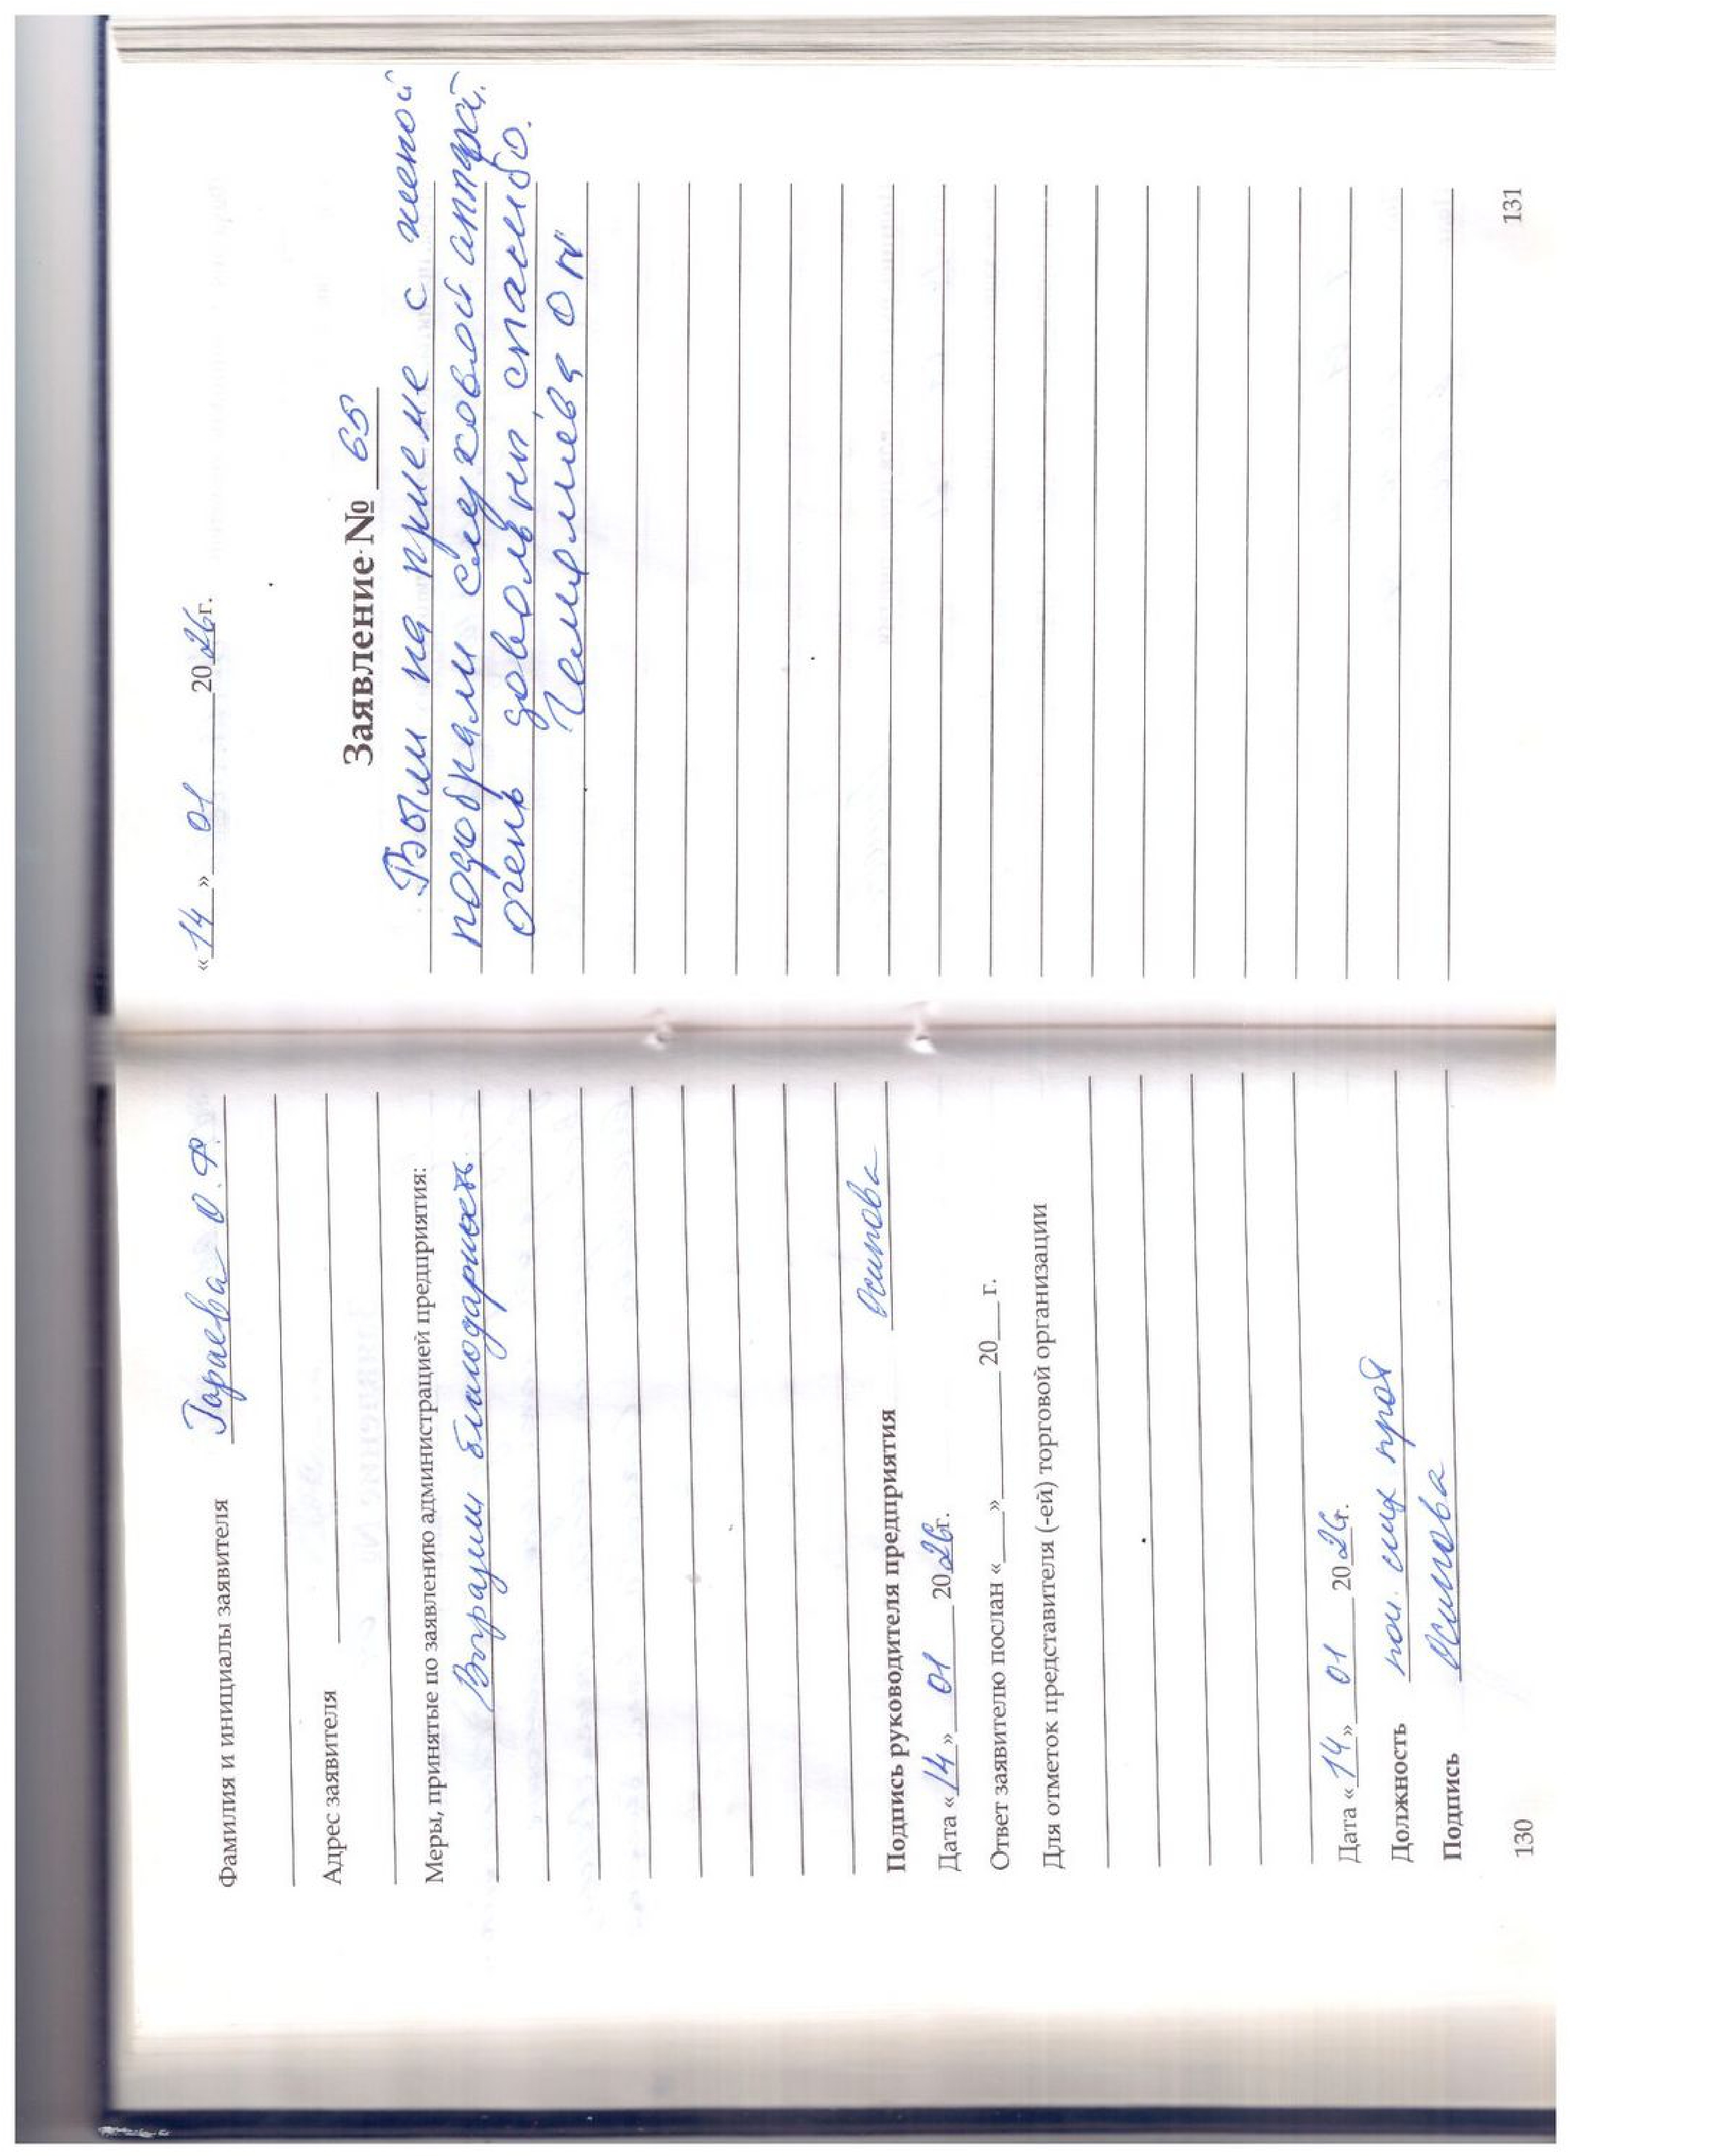 Фамилия и инициалы заявителя Гараева О.Ф.
Адрес заявителя
Меры, принятые по заявлению администрацией предприятия:
Выразим благодарность.
Подпись руководителя предприятия Осипова
Дата «14» 01 2026г.
Ответ заявителю послан «___»________20___г.
Для отметок представителя (-ей) торговой организации
Дата «14» 01 2026г.
Должность
Подпись Осипова
130
«14» 01 2026г.
Заявление № 65
Были на приеме с женой
подобрали слуховой аппарат.
очень довольны, спасибо.
131